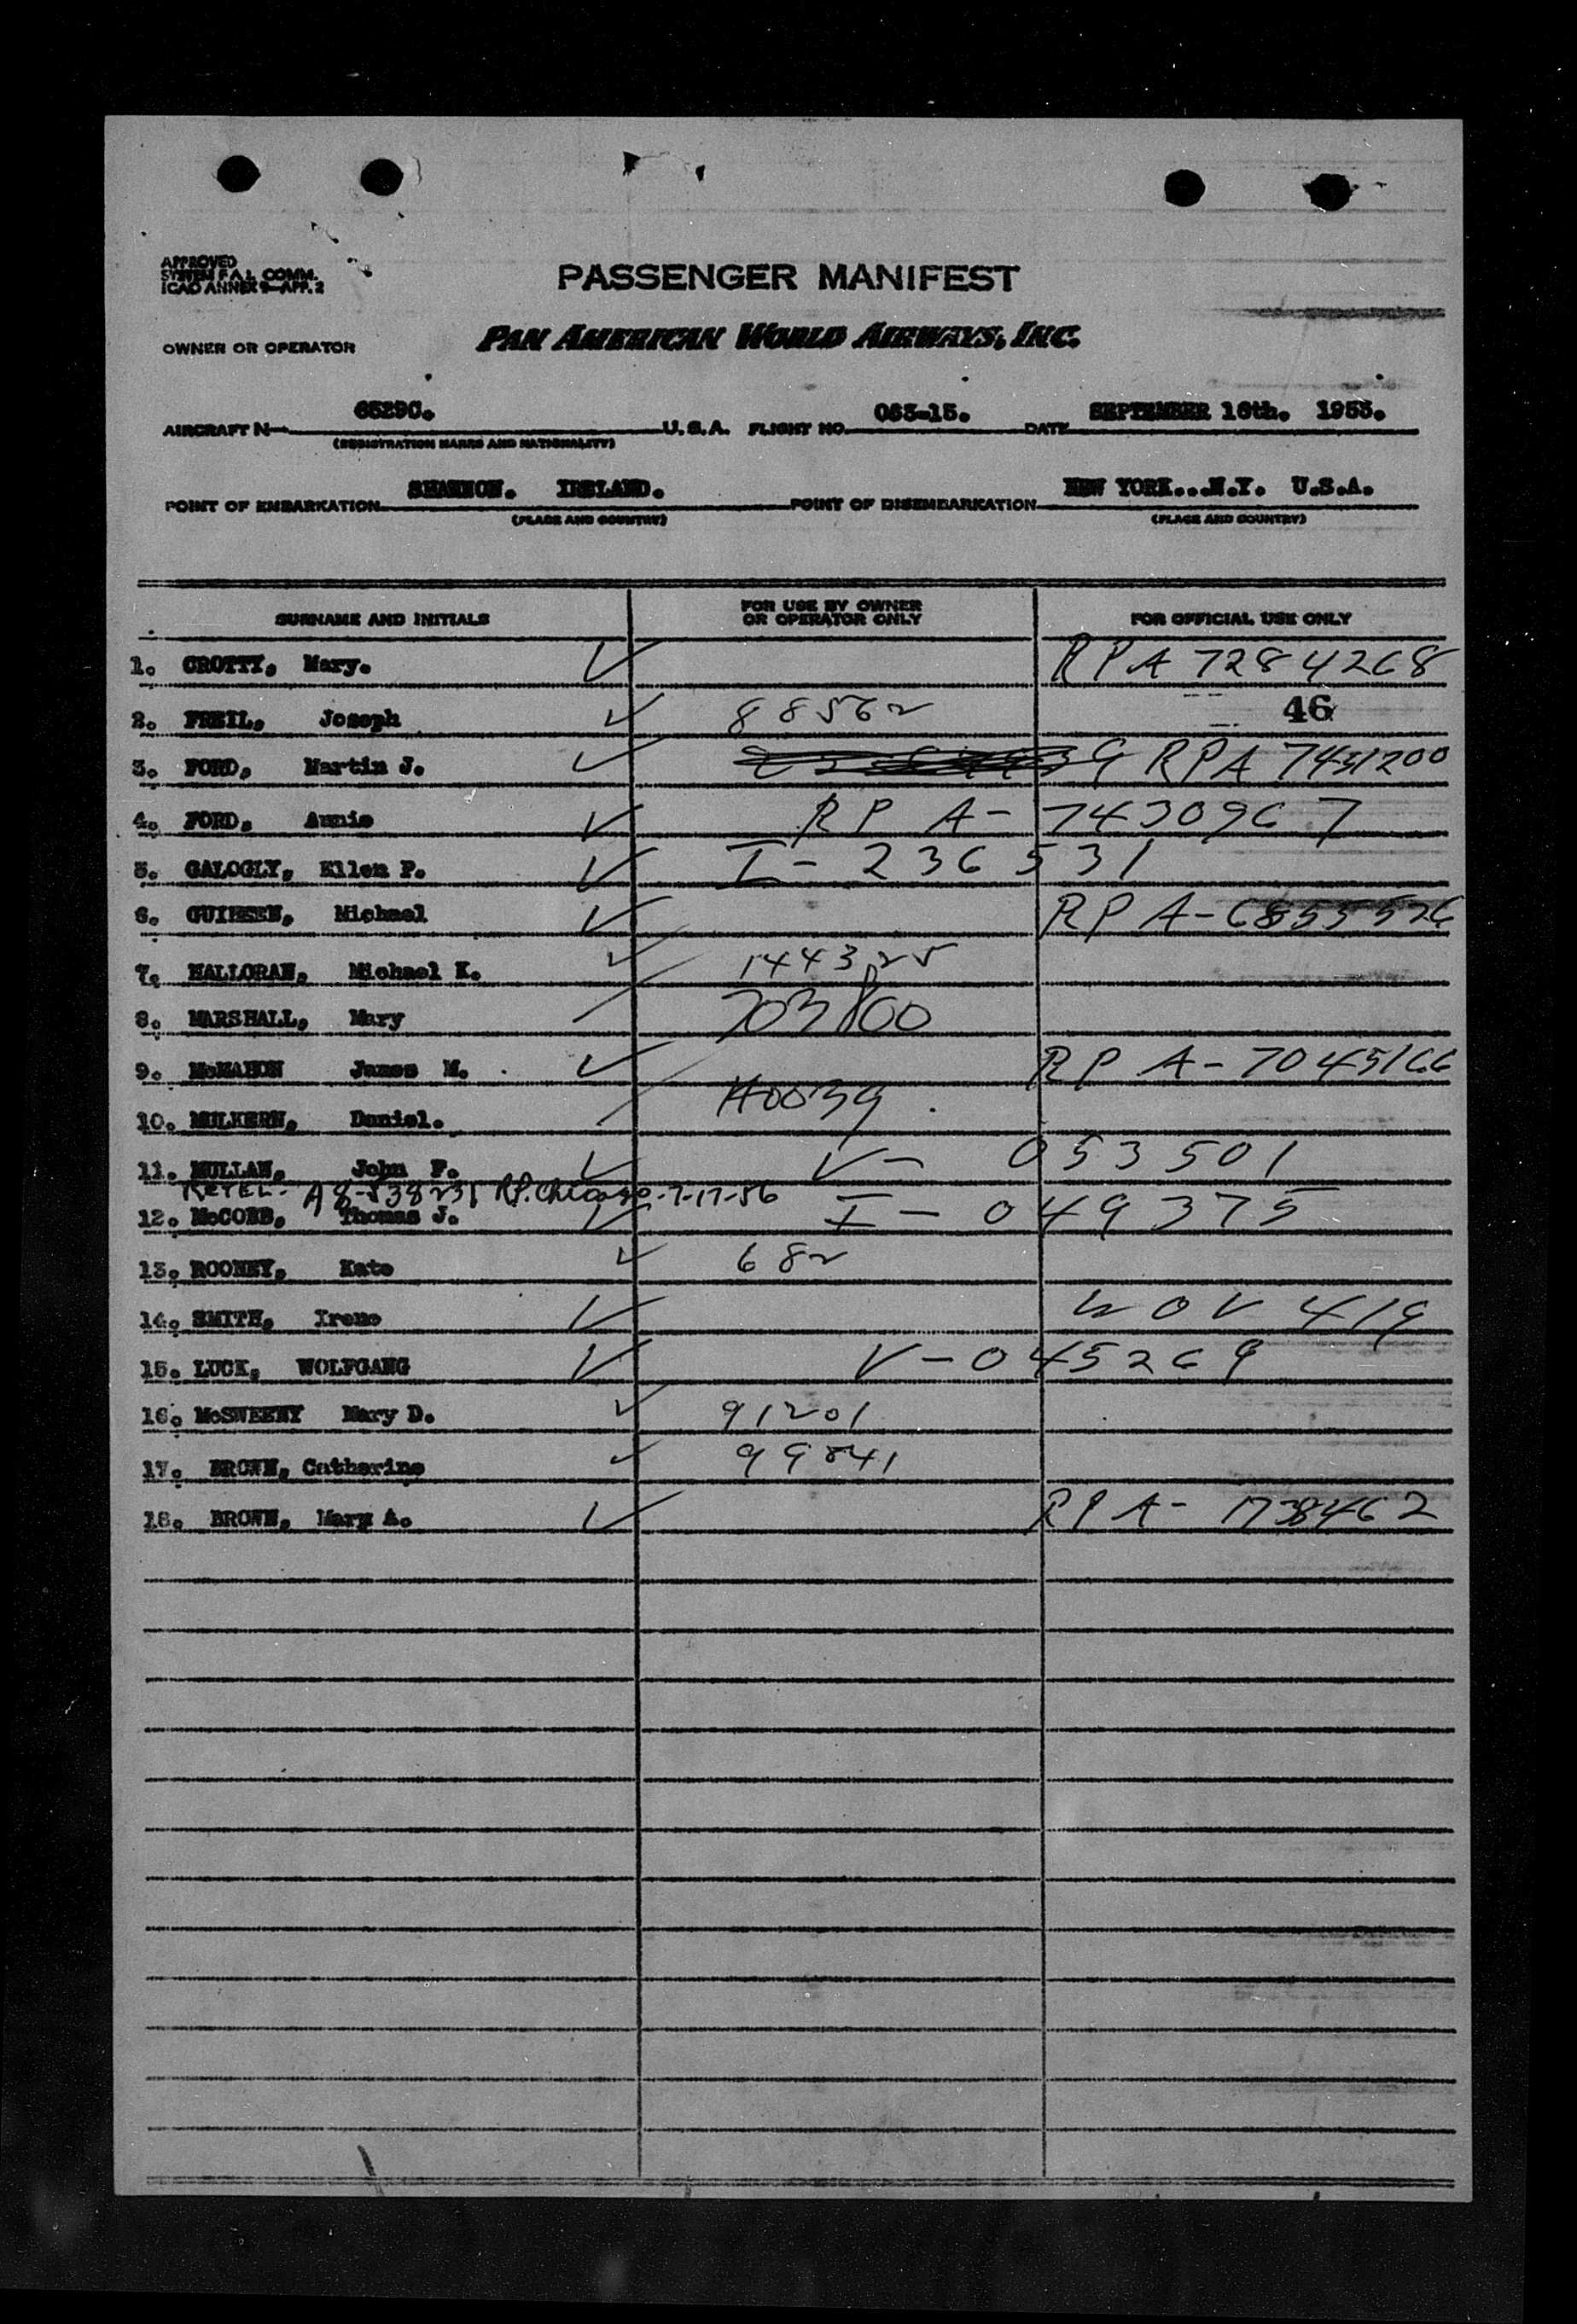 APPROVED
SYSTEM F.A.L. COMM.
ICAO ANNEX 9—APP. 2
PASSENGER MANIFEST
OWNER OR OPERATOR PAN AMERICAN WORLD AIRWAYS, INC.
AIRCRAFT N— 6529C. U.S.A. FLIGHT NO. 063-15. DATE SEPTEMBER 16th. 1953.
(REGISTRATION MARKS AND NATIONALITY)
POINT OF EMBARKATION SHANNON. IRELAND. POINT OF DISEMBARKATION NEW YORK...N.Y. U.S.A.
(PLACE AND COUNTRY) (PLACE AND COUNTRY)
SURNAME AND INITIALS FOR USE BY OWNER OR OPERATOR ONLY FOR OFFICIAL USE ONLY
1. CROTTY, Mary. RPA 7284268
2. FREIL, Joseph 88562 46
3. FORD, Martin J. RPA 7431200
4. FORD, Annie RP A- 7430967
5. GALOGLY, Ellen P. I-236531
6. Michael RP A-6855526
7. HALLORAN, Michael K. 144325
8. MARSHALL, Mary 703800
9. McMAHON James M. RP A-7045166
10. MULKERN, Daniel.
11. MULLAN, John F. V-053501
A8-538231 RP. Chicago-7-17-56
12. Thomas J. I-049375
13. ROONEY, Kate 682
14. SMITH, Irene
15. LUCK, WOLFGANG V-045269
16. McSWEENY Mary D. 91201
17. BROWN, Catherine 99841
18. BROWN, Mary A. RP A- 1738462